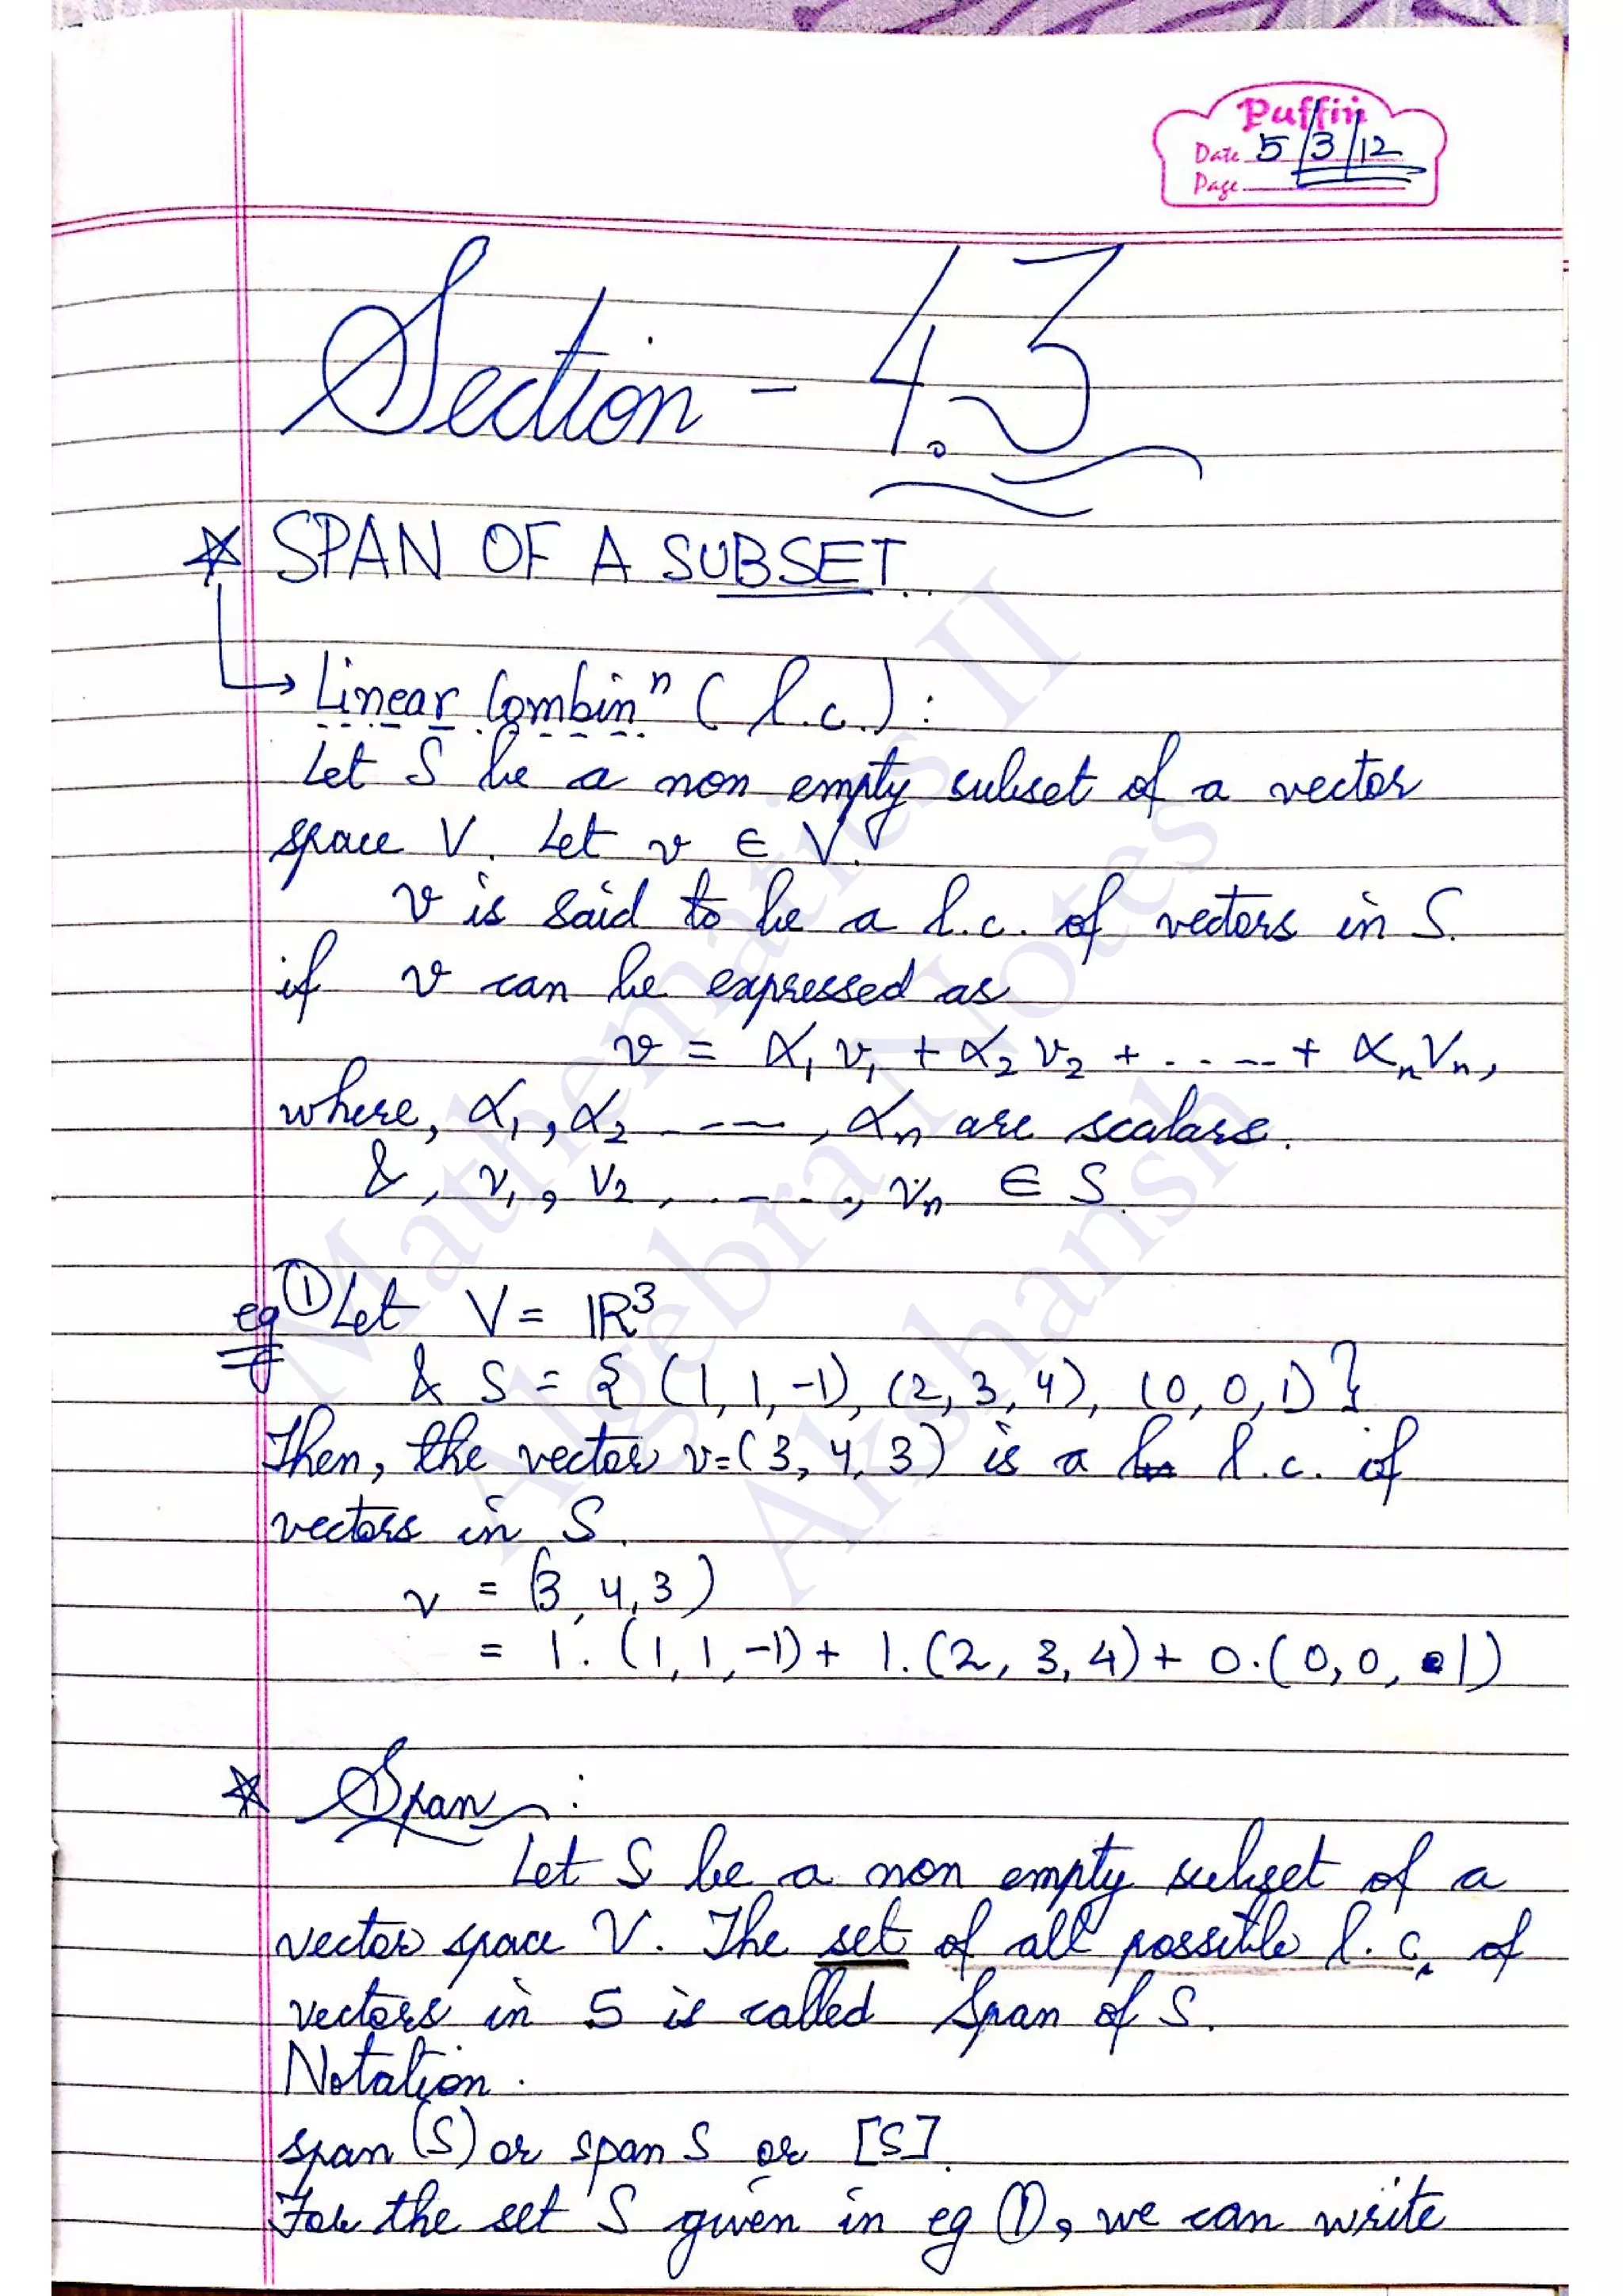 Puffin
Date 5/3/12
Page
Section - 4.3
☆ SPAN OF A SUBSET..
→ Linear Combinⁿ (l.c.) :
Let S be a non empty subset of a vector
space V. Let v ∈ V.
v is said to be a l.c. of vectors in S.
if v can be expressed as
v = α₁v₁ + α₂v₂ + ..... + αₙvₙ,
where, α₁, α₂ ----, αₙ are scalars.
&, v₁, v₂, .----., vₙ ∈ S.
eg ① Let V = ℝ³
& S = { (1, 1, -1), (2, 3, 4), (0, 0, 1) }
Then, the vector v=(3, 4, 3) is a l.c. of
vectors in S.
v = (3, 4, 3)
= 1. (1, 1, -1) + 1. (2, 3, 4) + 0. (0, 0, 1)
☆ Span :
Let S be a non empty subset of a
vector space V. The set of all possible l.c. of
vectors in S is called Span of S.
Notation.
span (S) or span S or [S].
For the set S given in eg ①, we can write
Mathematics II
Algebra Notes
Akshansh